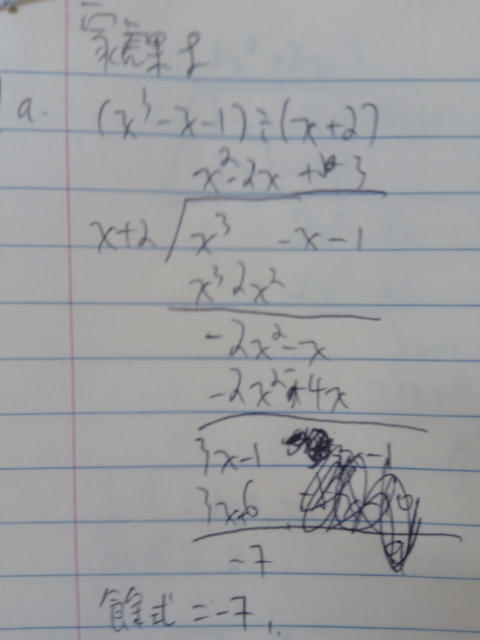 家課
a. (x³-x-1)÷(x+2)
x²-2x+3
x+2 x³ -x-1
x³ 2x²
-2x²-x
-2x²-4x
3x-1
3x 6
-7
餘式=-7